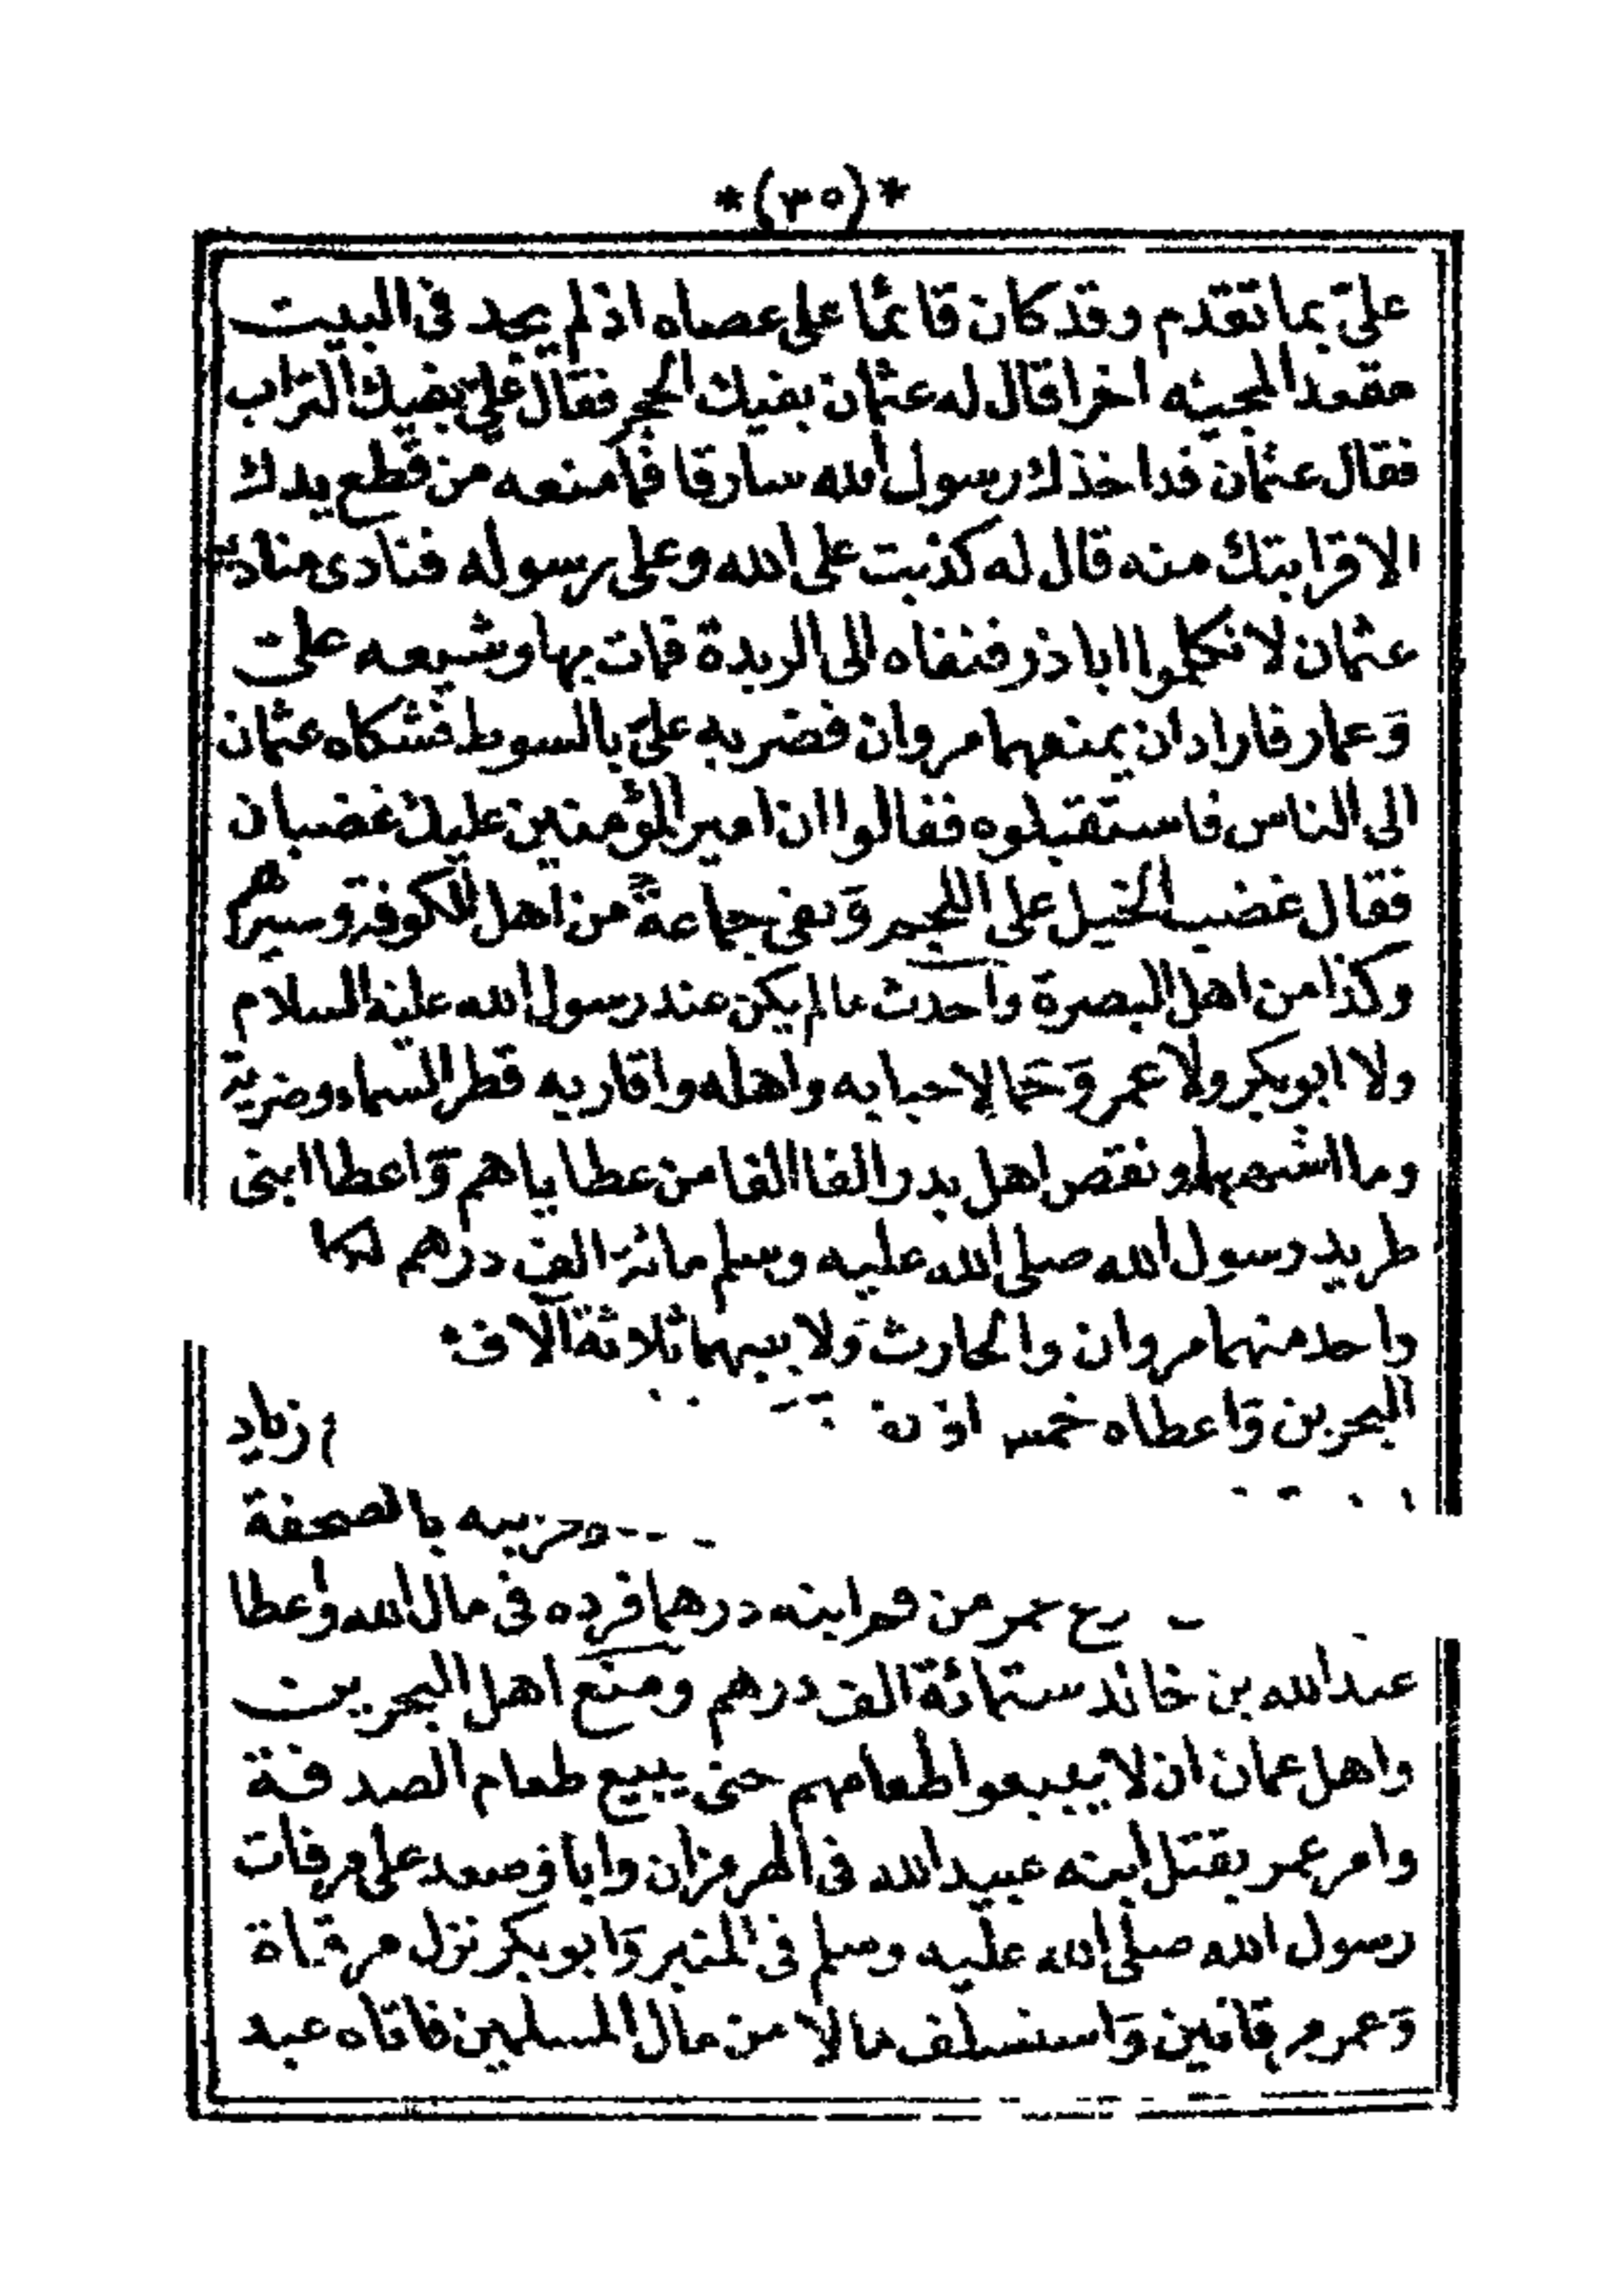 *(٣٥)*
علىّ بما تقدم وقد كان قائما على عصاه اذ لم يجد فى البيت
مقعدا لمجيئه اخرا قال له عثمان بفيك الحجر فقال علىّ بفيك التراب
فقال عثمان قد اخذك رسول الله سارقا فما منعه من قطع يدك
الا قرابتك منه قال له كذبت على الله وعلى رسوله فنادى منادى
عثمان لا تكلموا اباذر فنفاه الى الربدة فمات بها وشيعه على
وَعمار فاراد ان يمنعهما مروان فضربه علىّ بالسوط فشكاه عثمان
الى الناس فاستقبلوه فقالوا ان امير المؤمنين عليك غضبان
فقال غضب الخيل على اللجم وَنفى جماعةً من اهل الكوفة وسيرهم
وكذا من اهل البصرة واحدث ما لم يكن عند رسول الله عليه السلام
ولا ابوبكر ولا عمر وَحمَا لاحبابه واهله واقاربه قطر السماء وضرية
وما اشبهها ونقص اهل بدر الفا الفا من عطاياهم وَاعطا ابنى
طريد رسول الله صلى الله عليه وسلم مائة الف درهم لكل
واحد منهما مروان والحارث وَلابيهما ثلاثة آلاف
البحرين وَاعطاه خمس زياد
بالصحفة
عمر من ابنه درهما فرده فى مال الله واعطا
عبد الله بن خالد ستمائة الف درهم ومنع اهل البحرين
واهل عمان ان لا يبيعوا طعامهم حتى يبيع طعام الصدقة
وامر عمر بقتل ابنه عبيد الله فى الهرمزان وابا وصعد على مرقات
رسول الله صلى الله عليه وسلم فى المنبر وَابوبكر نزل مرقاة
وَعمر مرقاتين وَاستسلف مالا من مال المسلمين فاتاه عبد